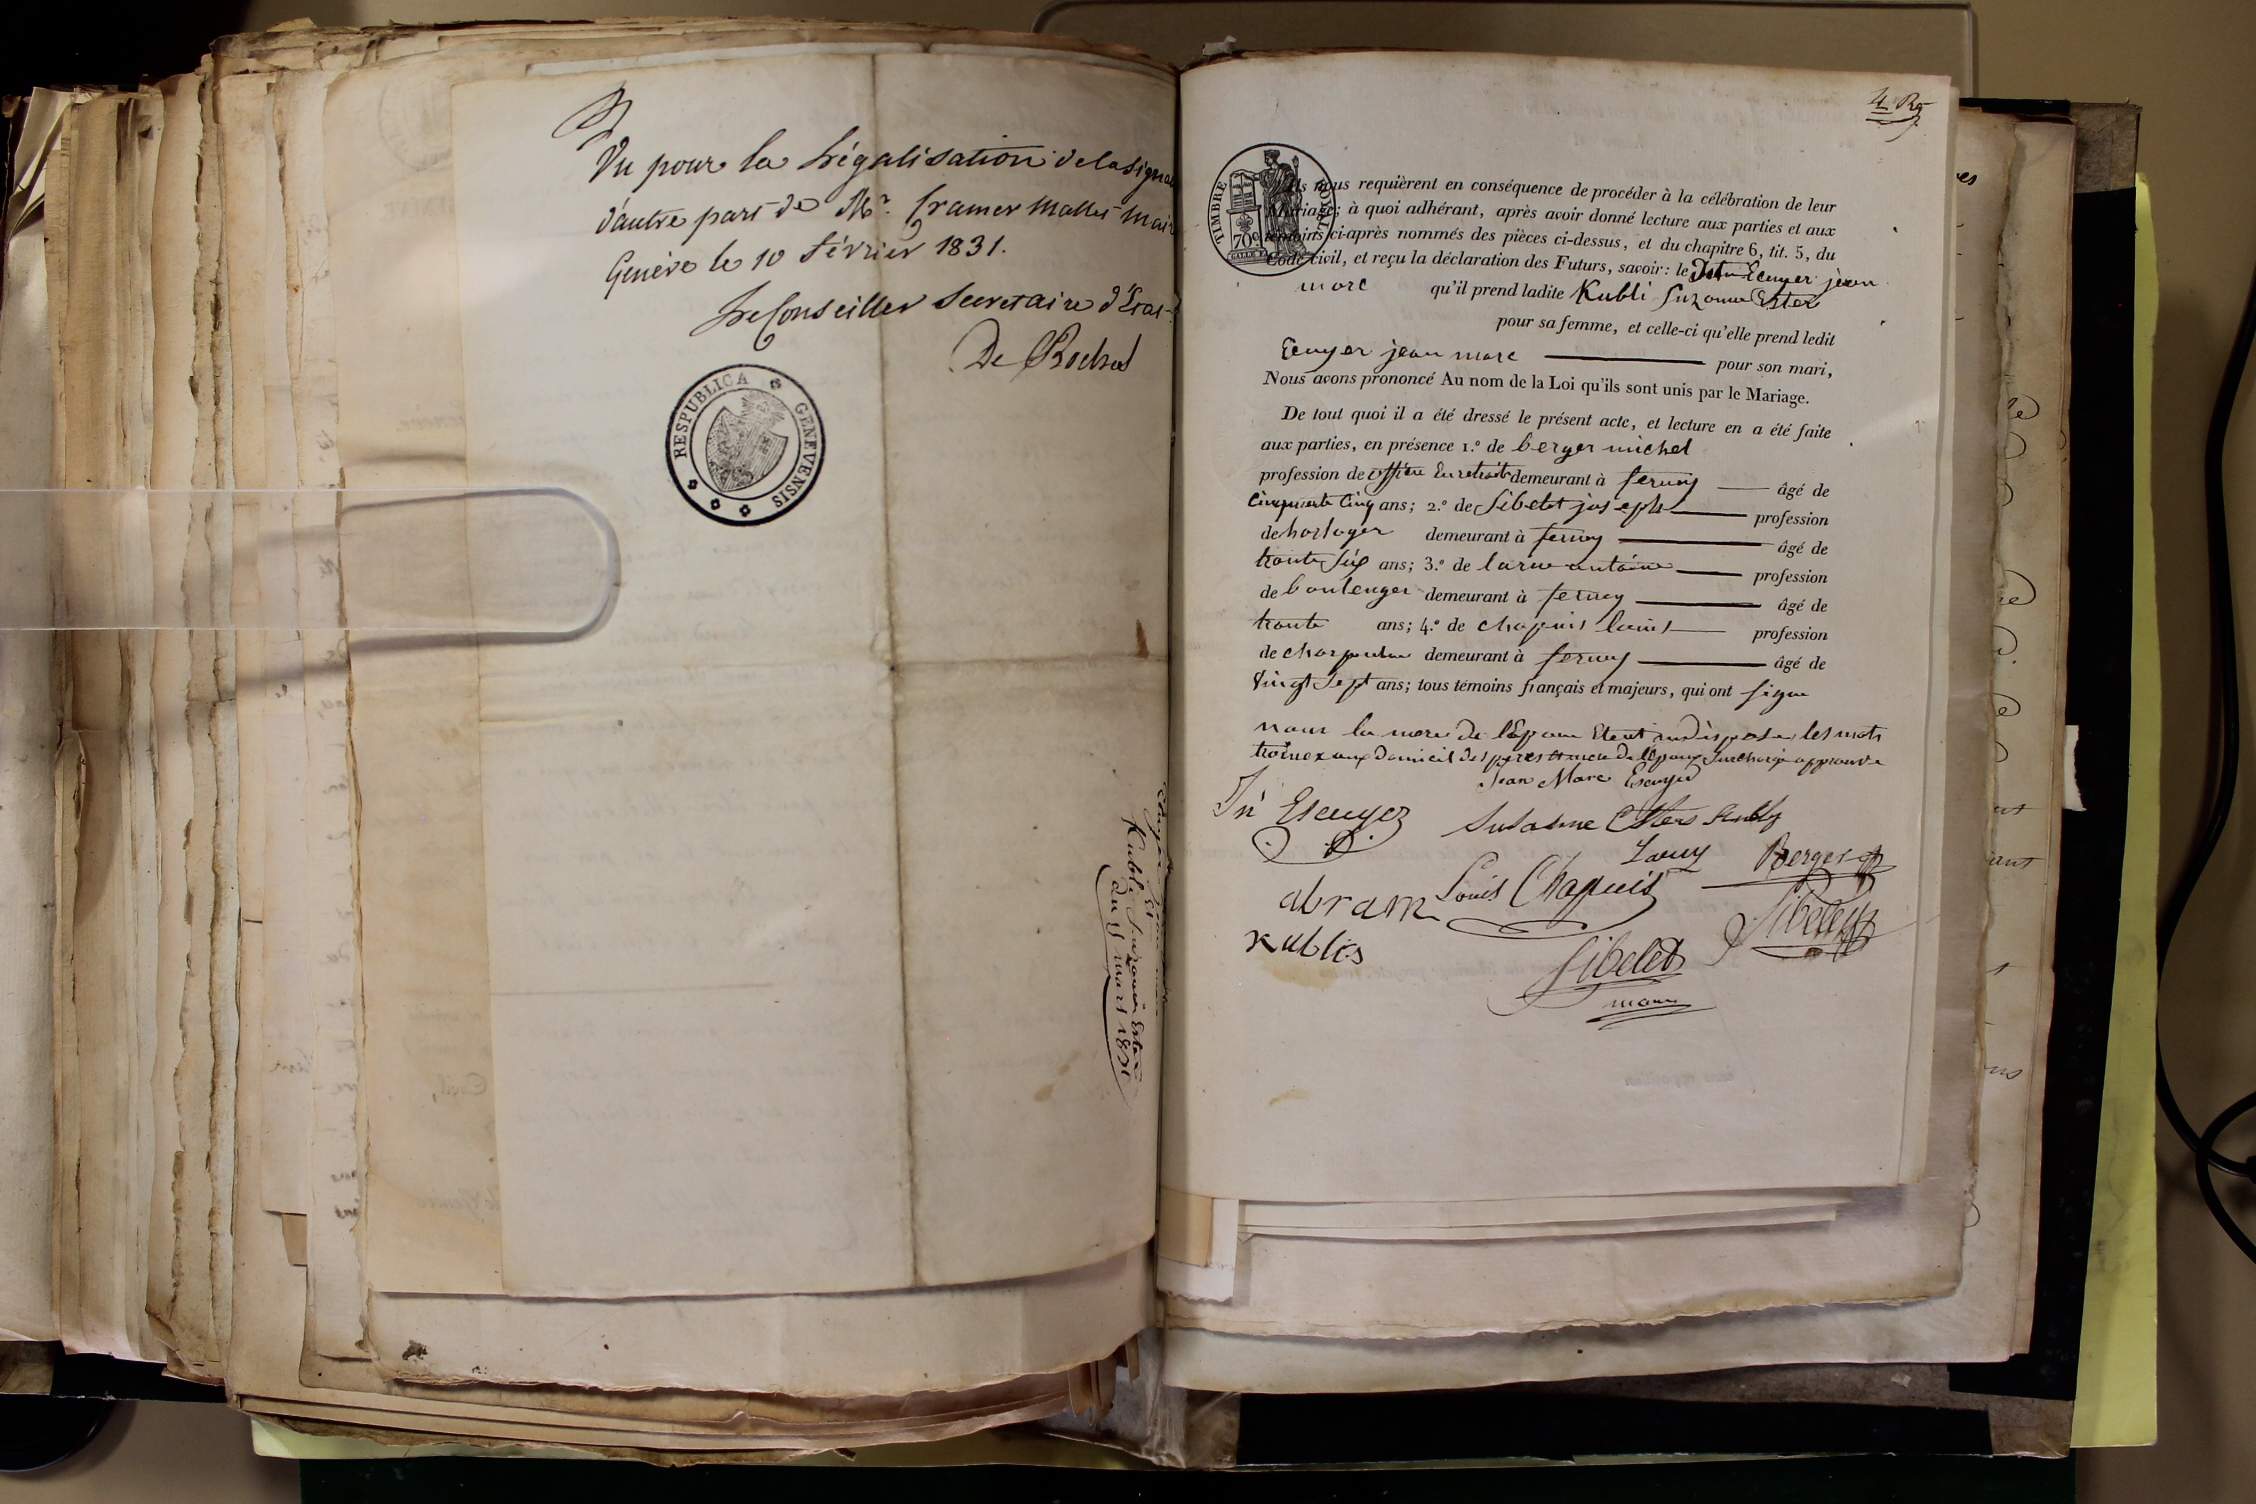 Vu pour la Légalisation de la Signa
d'autre part de Mr. Cramer Mallet Mair
Genève le 10 Février 1831.
Le Conseiller Secretaire d'Etat
De Roches
RESPUBLICA GENEVENSIS
Kubli Suzanne Ester
du 9 mars 1831
4 Rg
TIMBRE ROYAL
70c
Ils nous requièrent en conséquence de procéder à la célébration de leur
Mariage; à quoi adhérant, après avoir donné lecture aux parties et aux
témoins ci-après nommés des pièces ci-dessus, et du chapitre 6, tit. 5, du
Code civil, et reçu la déclaration des Futurs, savoir: le Ecuyer jean
marc qu'il prend ladite Kubli Suzanne Ester
pour sa femme, et celle-ci qu'elle prend ledit
Ecuyer jean marc pour son mari,
Nous avons prononcé Au nom de la Loi qu'ils sont unis par le Mariage.
De tout quoi il a été dressé le présent acte, et lecture en a été faite
aux parties, en présence 1.º de berger michel
profession de officie En retraite demeurant à ferney âgé de
Cinquante Cinq ans; 2.º de Sibelet joseph profession
de horloger demeurant à ferney âgé de
trante Six ans; 3.º de larue antoine profession
de boulenger demeurant à ferney âgé de
trante ans; 4.º de chapuis louis profession
de charpentier demeurant à ferney âgé de
Vingt Sept ans; tous témoins français et majeurs, qui ont signe
la mere de l'Epouse Etent indispose les mots
domicil des peres et mere de l'epoux Surchargé approuvé
Jean Marc Escuyer
Escuyer
Susanne Esters Kubly
Laruy
Berger
abram
Louis Chapuis
Kublis
Sibelet
Sibelet
maire